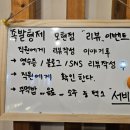 족발형제 모현점 "리뷰 이벤트
직원에게 리뷰작성 이야기후
영수증 / 블로그 / SNS 리뷰작성
직원에게 확인한다.
주먹밥 음료 택 서비